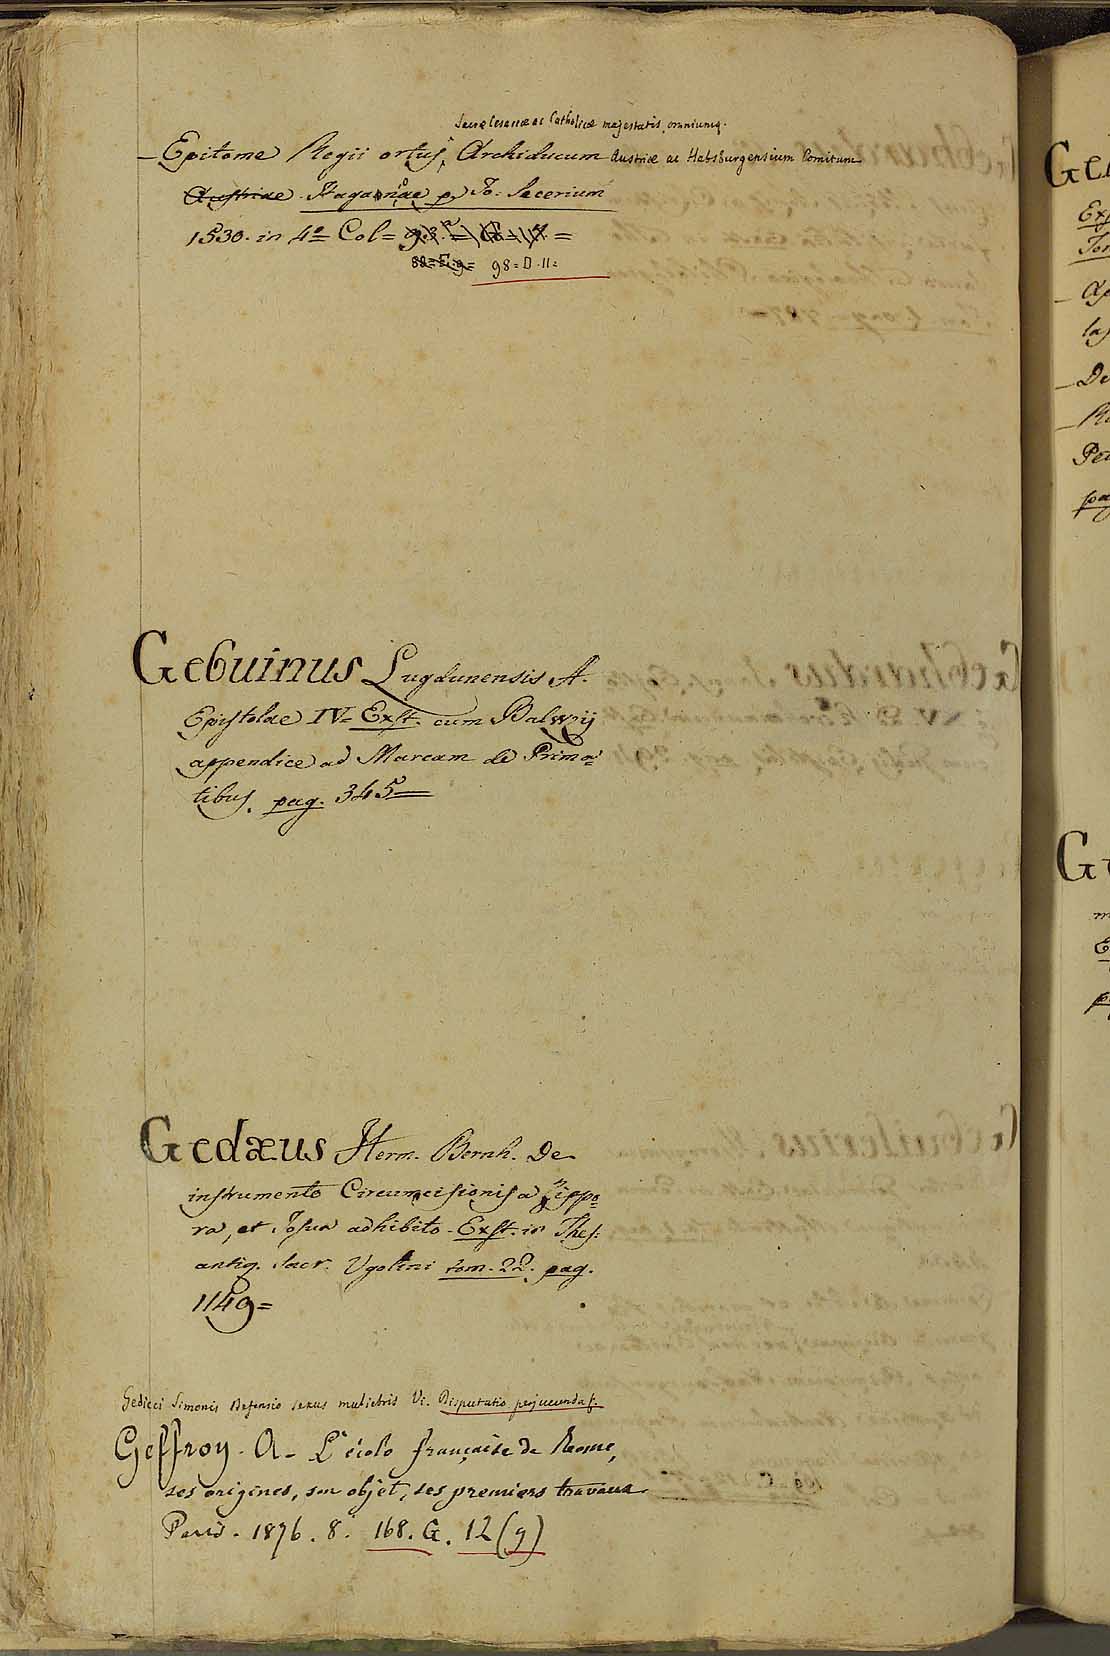 Sacræ Cesareæ ac Catholicæ majestatis, omniumq.
— Epitome Regii ortus, Archiducum Austriæ ac Habsburgensium Comitum
Austriae. Haganoae p. Jo: Secerium
1530. in 4º= Col=
98=D.II=
Gebuinus Lugdunensis A.
Epistolae IV= Exst. cum Baluzij
appendice ad Marcam de Prima=
tibus. pag. 345=
Gedæus Herm. Bernh. De
instrumento Circumcisionis a Zippo=
ra, et Josua adhibito. Exst. in Thes:
antiq. Sacr. Ugolini tom. 22. pag.
1149=
Gedicci Simonis Defensio sexus muliebris Vi. Disputatio perjucunda &.
Geffroy. A. L'école française de Rome,
ses origines, son objet, ses premiers travaux
Paris. 1876. 8. 168. G. 12 (9)
Ge
Ex
To
— Ap
las
— De
— Re
Pet
pa
G
m
E
p